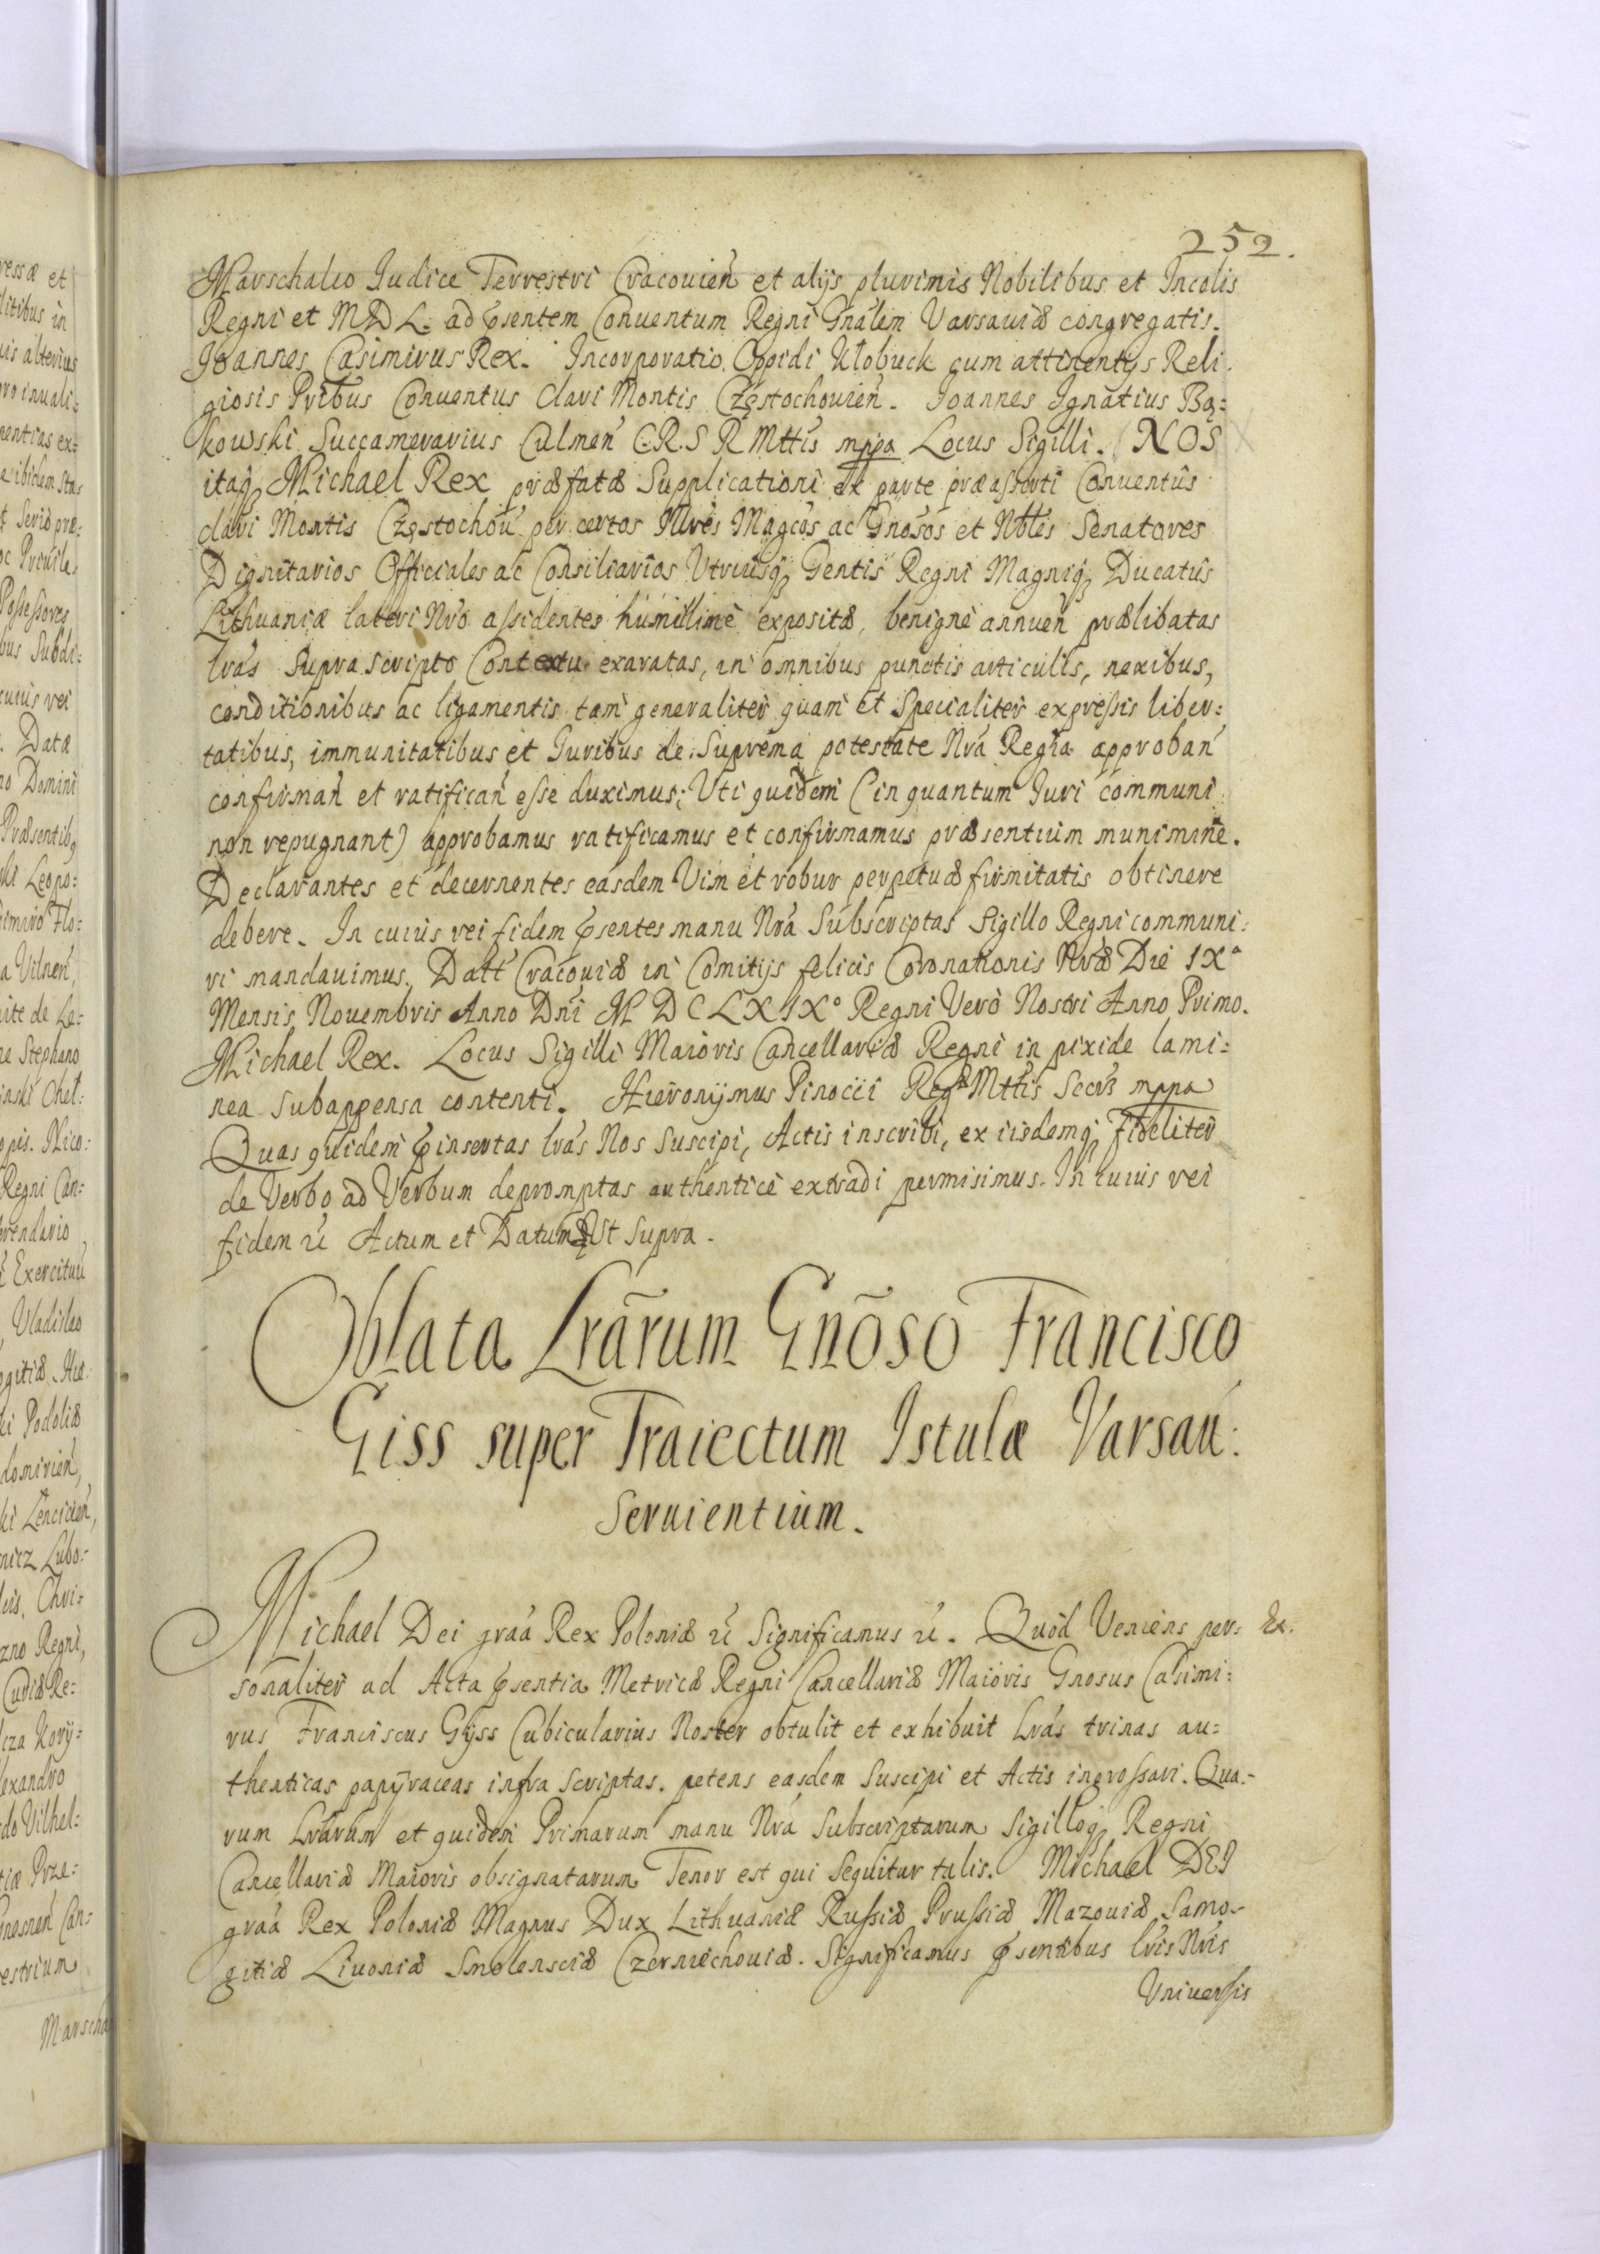 252.
Marschalco Iudice Terrestri Cracouień et alijs plurimis Nobilibus et Incolis
Regni et M D L. ad p̄sentem Conuentum Regni Gnãlem Varsauiæ congregatis.
Joannes Casimirus Rex. Incorporatio Oppidi Kłobuck cum attinentijs Reli-
giosis Prĩbus Conuentus Clari Montis Częstochouień. Joannes Ignatius Bą:
kowski Succamerarius Culmeń C.R.S R Mttĩs mppa Locus Sigilli. NOS
itaq̨ Michael Rex præfatæ Supplicationi ex parte præasserti Conuentûs
clari Montis Częstochou̇ per certos Illres Mag̃cos ac Gnõsos et Nobĩles Senatores
Dignitarios Officiales ac Consiliarios Vtriusq̨ Gentis Regni Magniq̨ Ducatus
Lithuaniæ lateri Nrõ assidentes humillimè expositæ, benignè annueń prælibatas
lrãs supra scripto Contextu exaratas, in omnibus punctis articulis, nexibus,
conditionibus ac ligamentis tam generaliter quam et specialiter expressis liber:
tatibus, immunitatibus et Iuribus de Suprema potestate Nrã Regia approbań
confirmań et ratificań esse duximus; Vti quidem (in quantum Iuri communi
non repugnant) approbamus ratificamus et confirmamus præsentium munimine.
Declarantes et decernentes easdem Vim et robur perpetuæ firmitatis obtinere
debere. In cuius rei fidem p̄sentes manu Nrã Subscriptas Sigillo Regni communi:
ri mandauimus. Datt Cracouiæ in Comitijs felicis Coronationis Nræ Die IXª
Mensis Nouembris Anno Dnĩ M D C L X I Xº Regni Verò Nostri Anno Primo.
Michael Rex. Locus Sigilli Maioris Cancellariæ Regni in pixide lami:
nea subappensa contenti. Hieronijmus Pinocci Regæ Mttĩs Secrs mppa
Quas quidem p̄insertas lrãs Nos suscipi, Actis inscribi, ex iisdemq̨ fideliter
de Verbo ad Verbum depromptas authenticè extradi permisimus. In cuius rei
fidem &c Actum et Datum Ut supra.
Oblata Lrãrum Gnõso Francisco
Giss super Traiectum Istulæ Varsau̇:
seruientium.
Michael Dei graã Rex Poloniæ &c Significamus &c. Quod Veniens per- Ex.
sonaliter ad Acta p̄sentia Metricæ Regni Cancellariæ Maioris Gnosus Casimi:
rus Franciscus Gijss Cubicularius Noster obtulit et exhibuit Lrãs trinas au:
thenticas papijraceas infra scriptas. petens easdem suscipi et Actis ingrossari. Qua-
rum Lrãrum et quidem Primarum manu Nrã Subscriptarum Sigilloq̨ Regni
Cancellariæ Maioris obsignatarum Tenor est qui sequitur talis. Michael DEI
graã Rex Poloniæ Magnus Dux Lithuaniæ Russiæ Prussiæ Mazouiæ Samo-
gitiæ Liuoniæ Smolensciæ Czerniechouiæ. Significamus p̄sentibus lrĩs Nrĩs
Vniuersis